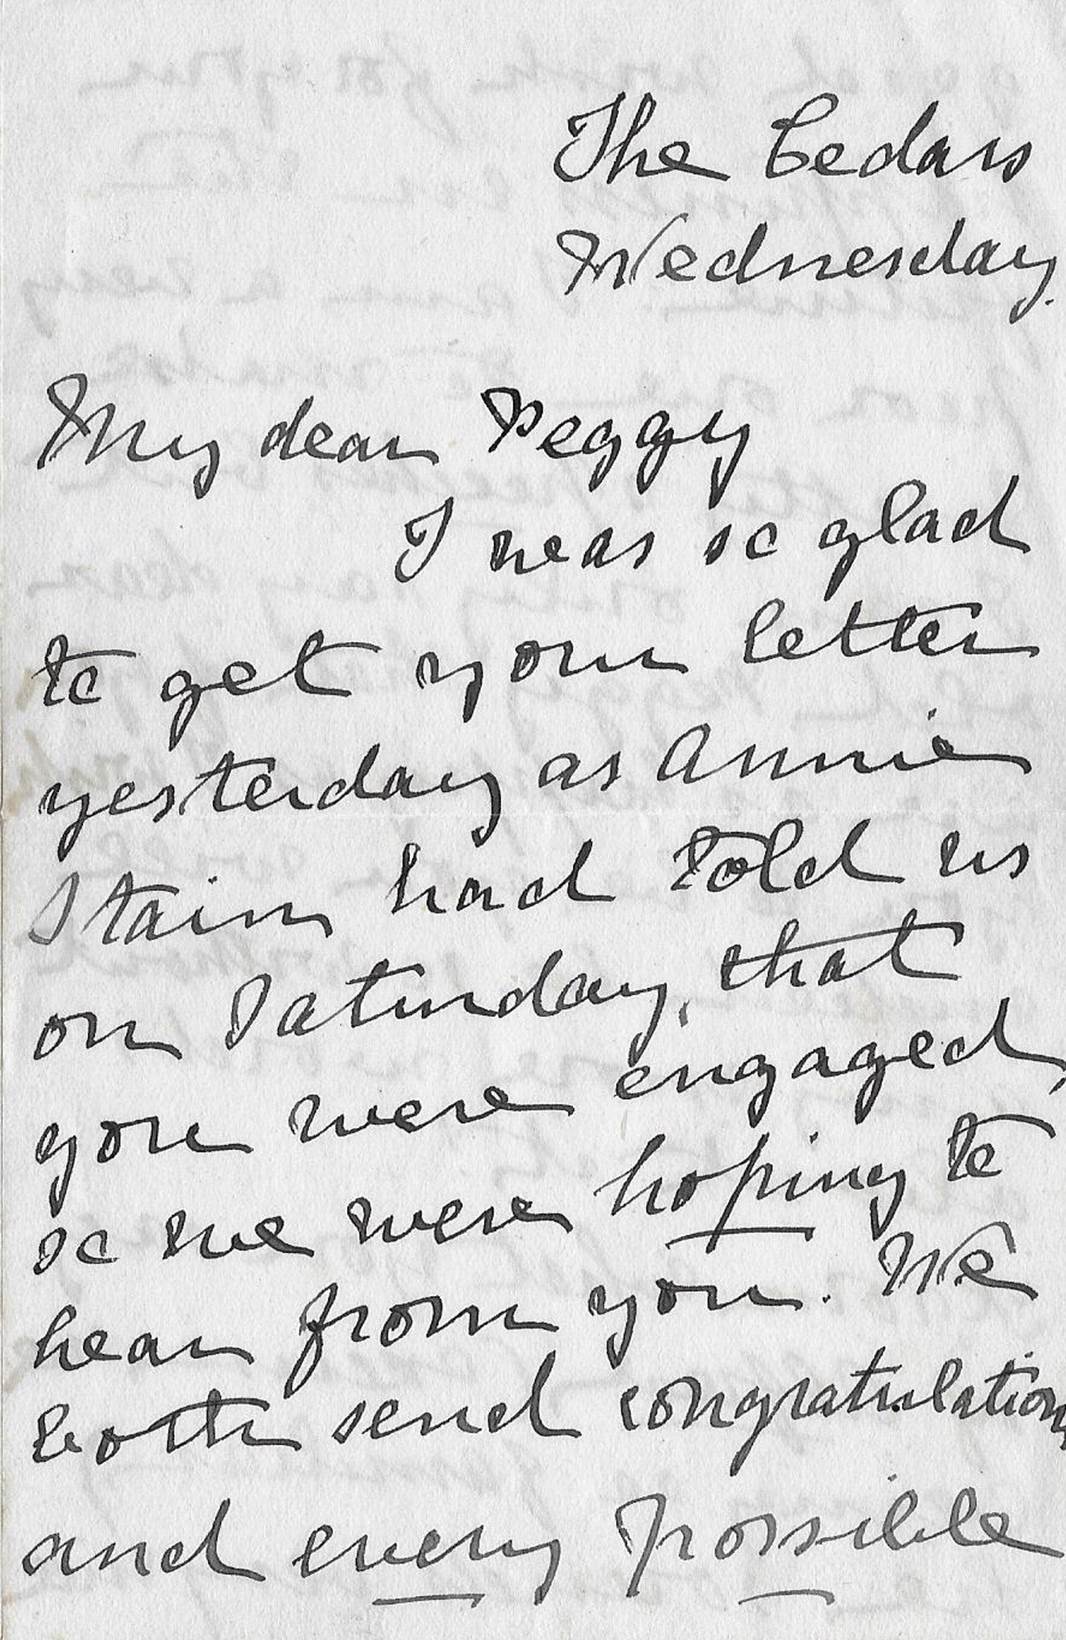 The Cedars
Wednesday.
My dear Peggy
I was so glad
to get your letter
yesterday as Annie
Stain had told us
on Saturday, that
you were engaged,
so we were hoping to
hear from you. We
both send congratulations
and every possible